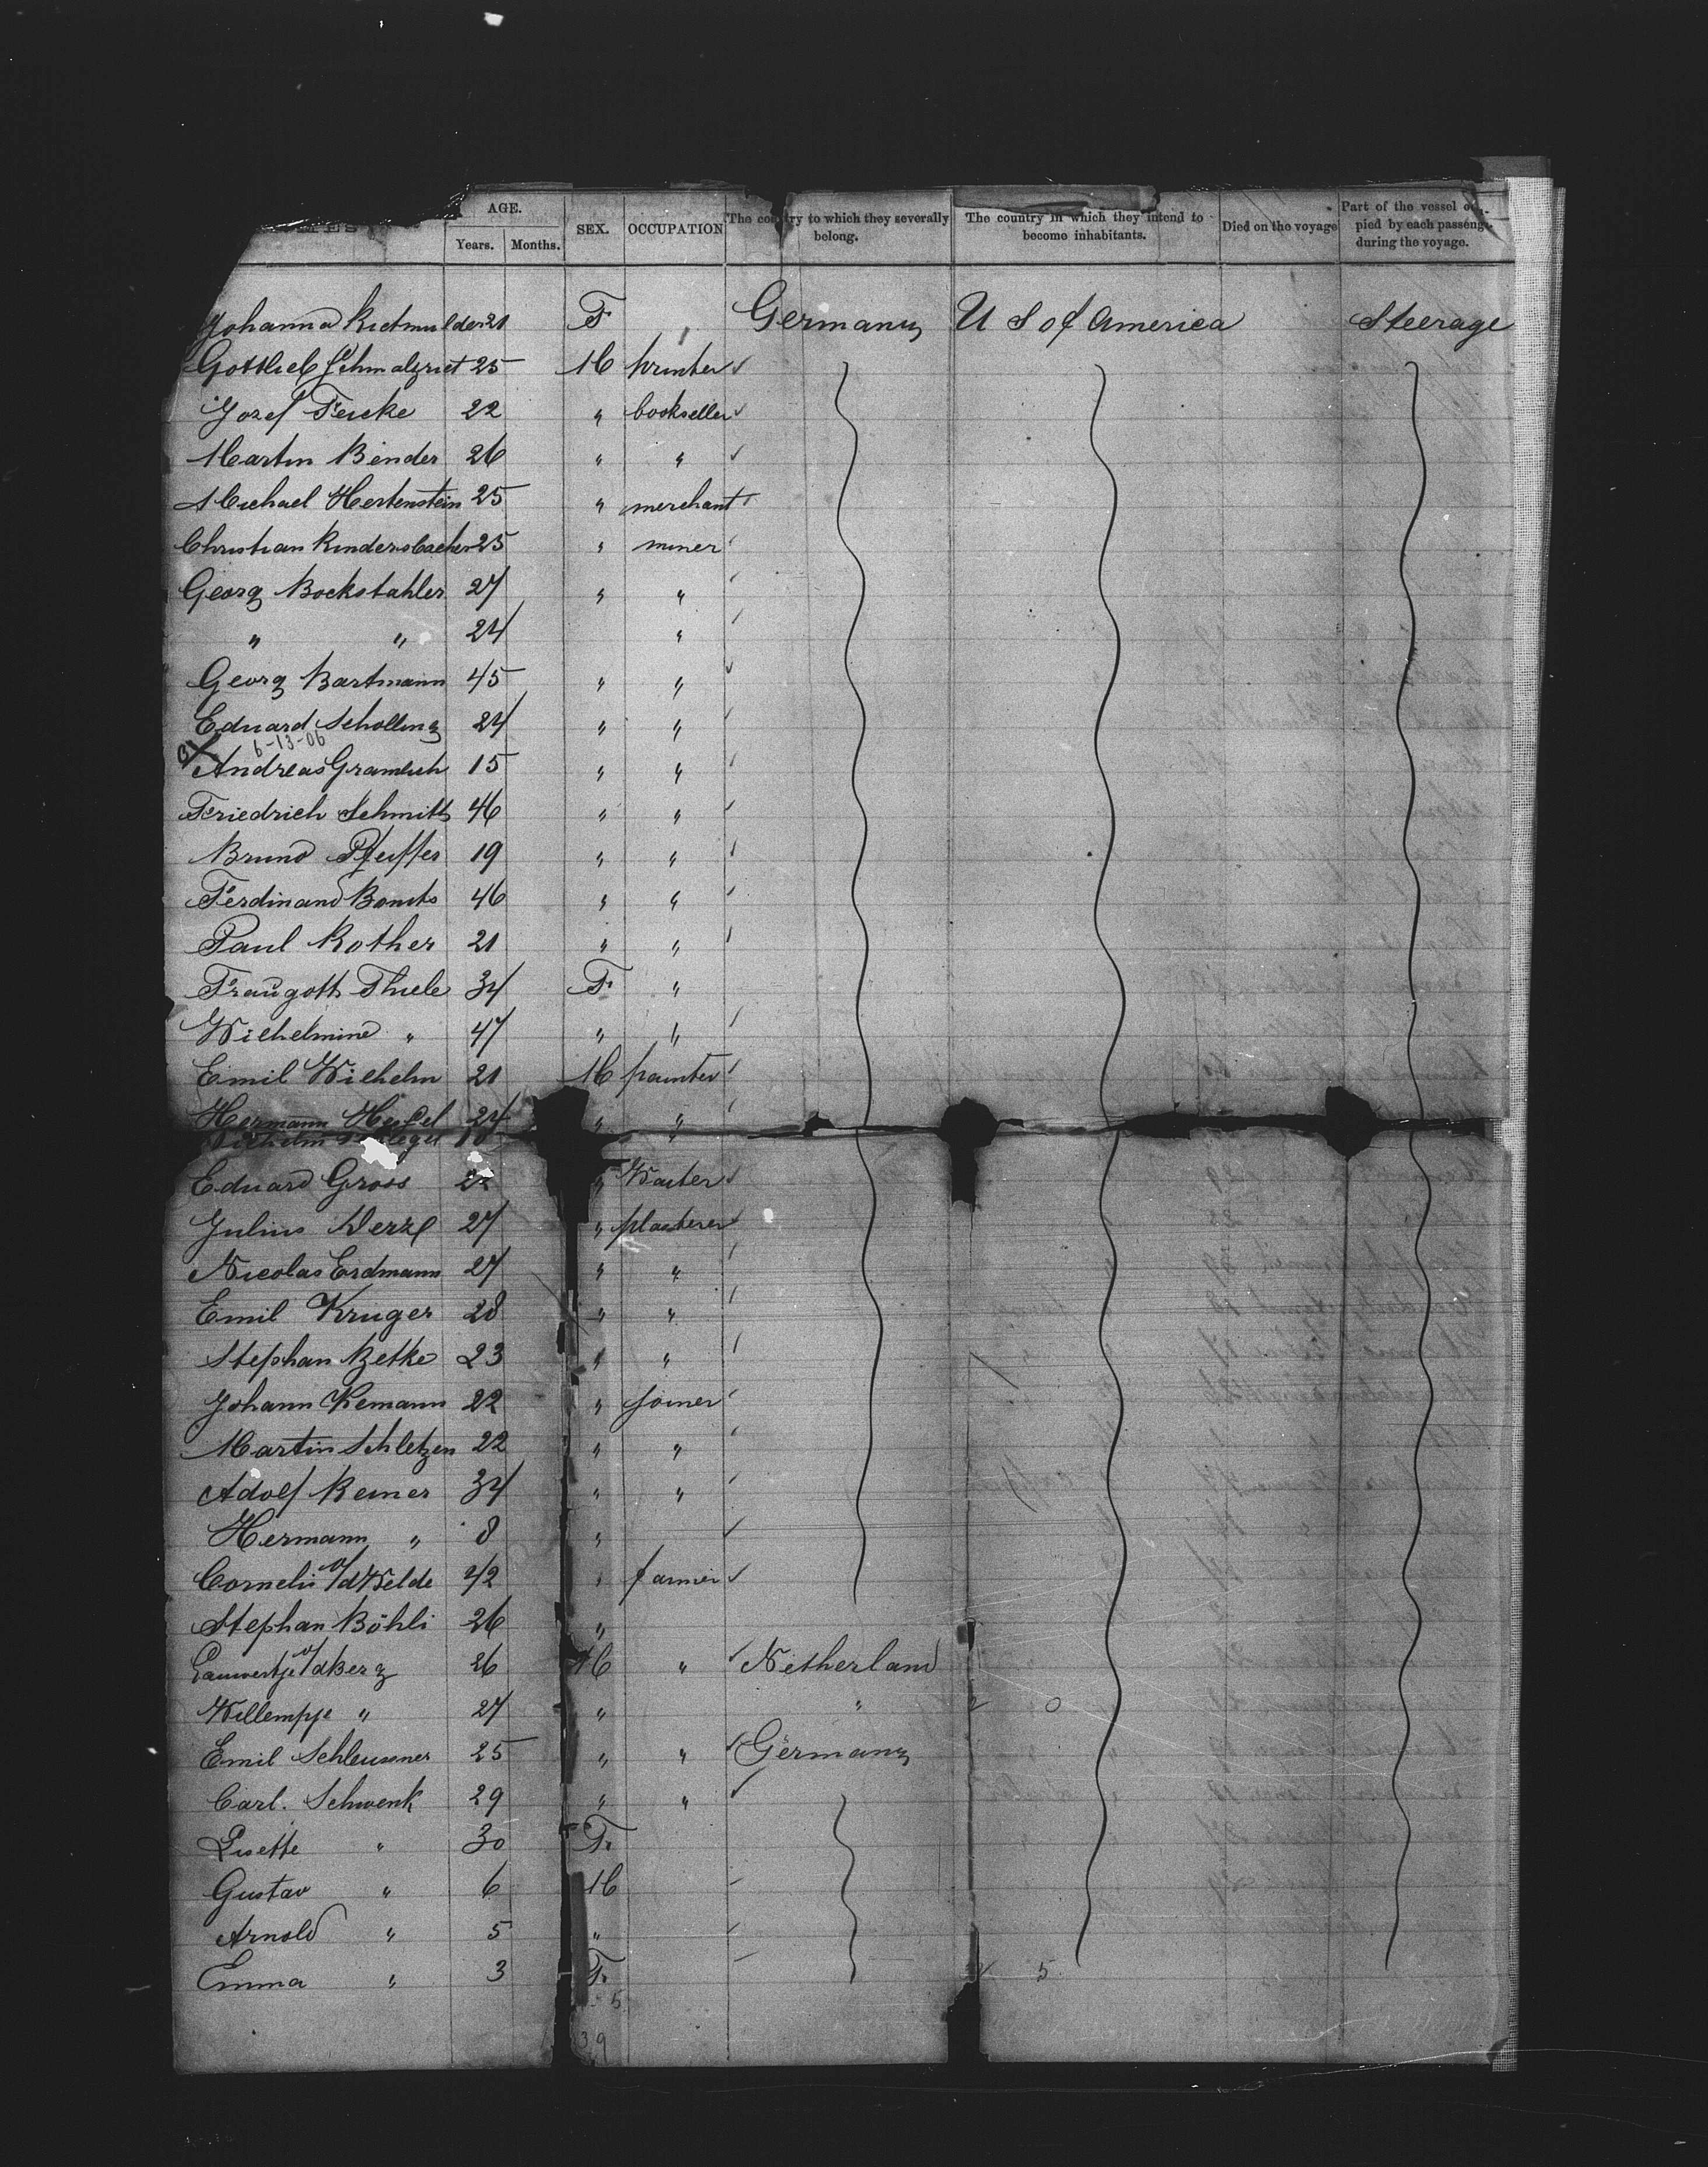 AGE. SEX. OCCUPATION The country to which they severally belong. The country in which they intend to become inhabitants. Died on the voyage Part of the vessel pied by each during the voyage.
Years. Months.
Johanna 21 F Germany U S of America Steerage
Gottlieb Schmalzriet 25 M printer
Jozef Feicke 22 " bookseller
Martin Binder 26 " "
Michael Hertenstein 25 " merchant
Christian Kindersbacher 25 " miner
Georg Bockstahler 27 " "
" " 24 "
Georg Bartmann 45 " "
Eduard Schölling 24 " "
6-13-06
Andreas Gramlich 15 " "
Friedrich Schmitt 46 " "
Bruno Pfeiffer 19 " "
Ferdinand 46 " "
Paul Rother 21 " "
Traugott Thiele 34 F "
Wilhelmine " 47 " "
Emil Wilhelm 21 M painter
Hermann 24 " "
Wilhelm
Eduard Gross 22 " Waiter
Julius 27 " plasterer
Nicolas Erdmann 27 " "
Emil Kruger 28 " "
Stephan Betke 23 " "
Johann Kemann 22 " joiner
Martin Schletzen 22 " "
Adolf Reiner 34 " "
Hermann " 8 "
Cornelis v/d Velde 42 " farmer
Stephan Böhli 26 "
v/d Berg 26 M " Netherland
Willempje " 27 " "
Emil Schleusener 25 " " Germany
Carl. Schwenk 29 " "
Lisette " 30 F.
Gustav " 6 M
Arnold " 5 "
Emma " 3 F. 5
5
39